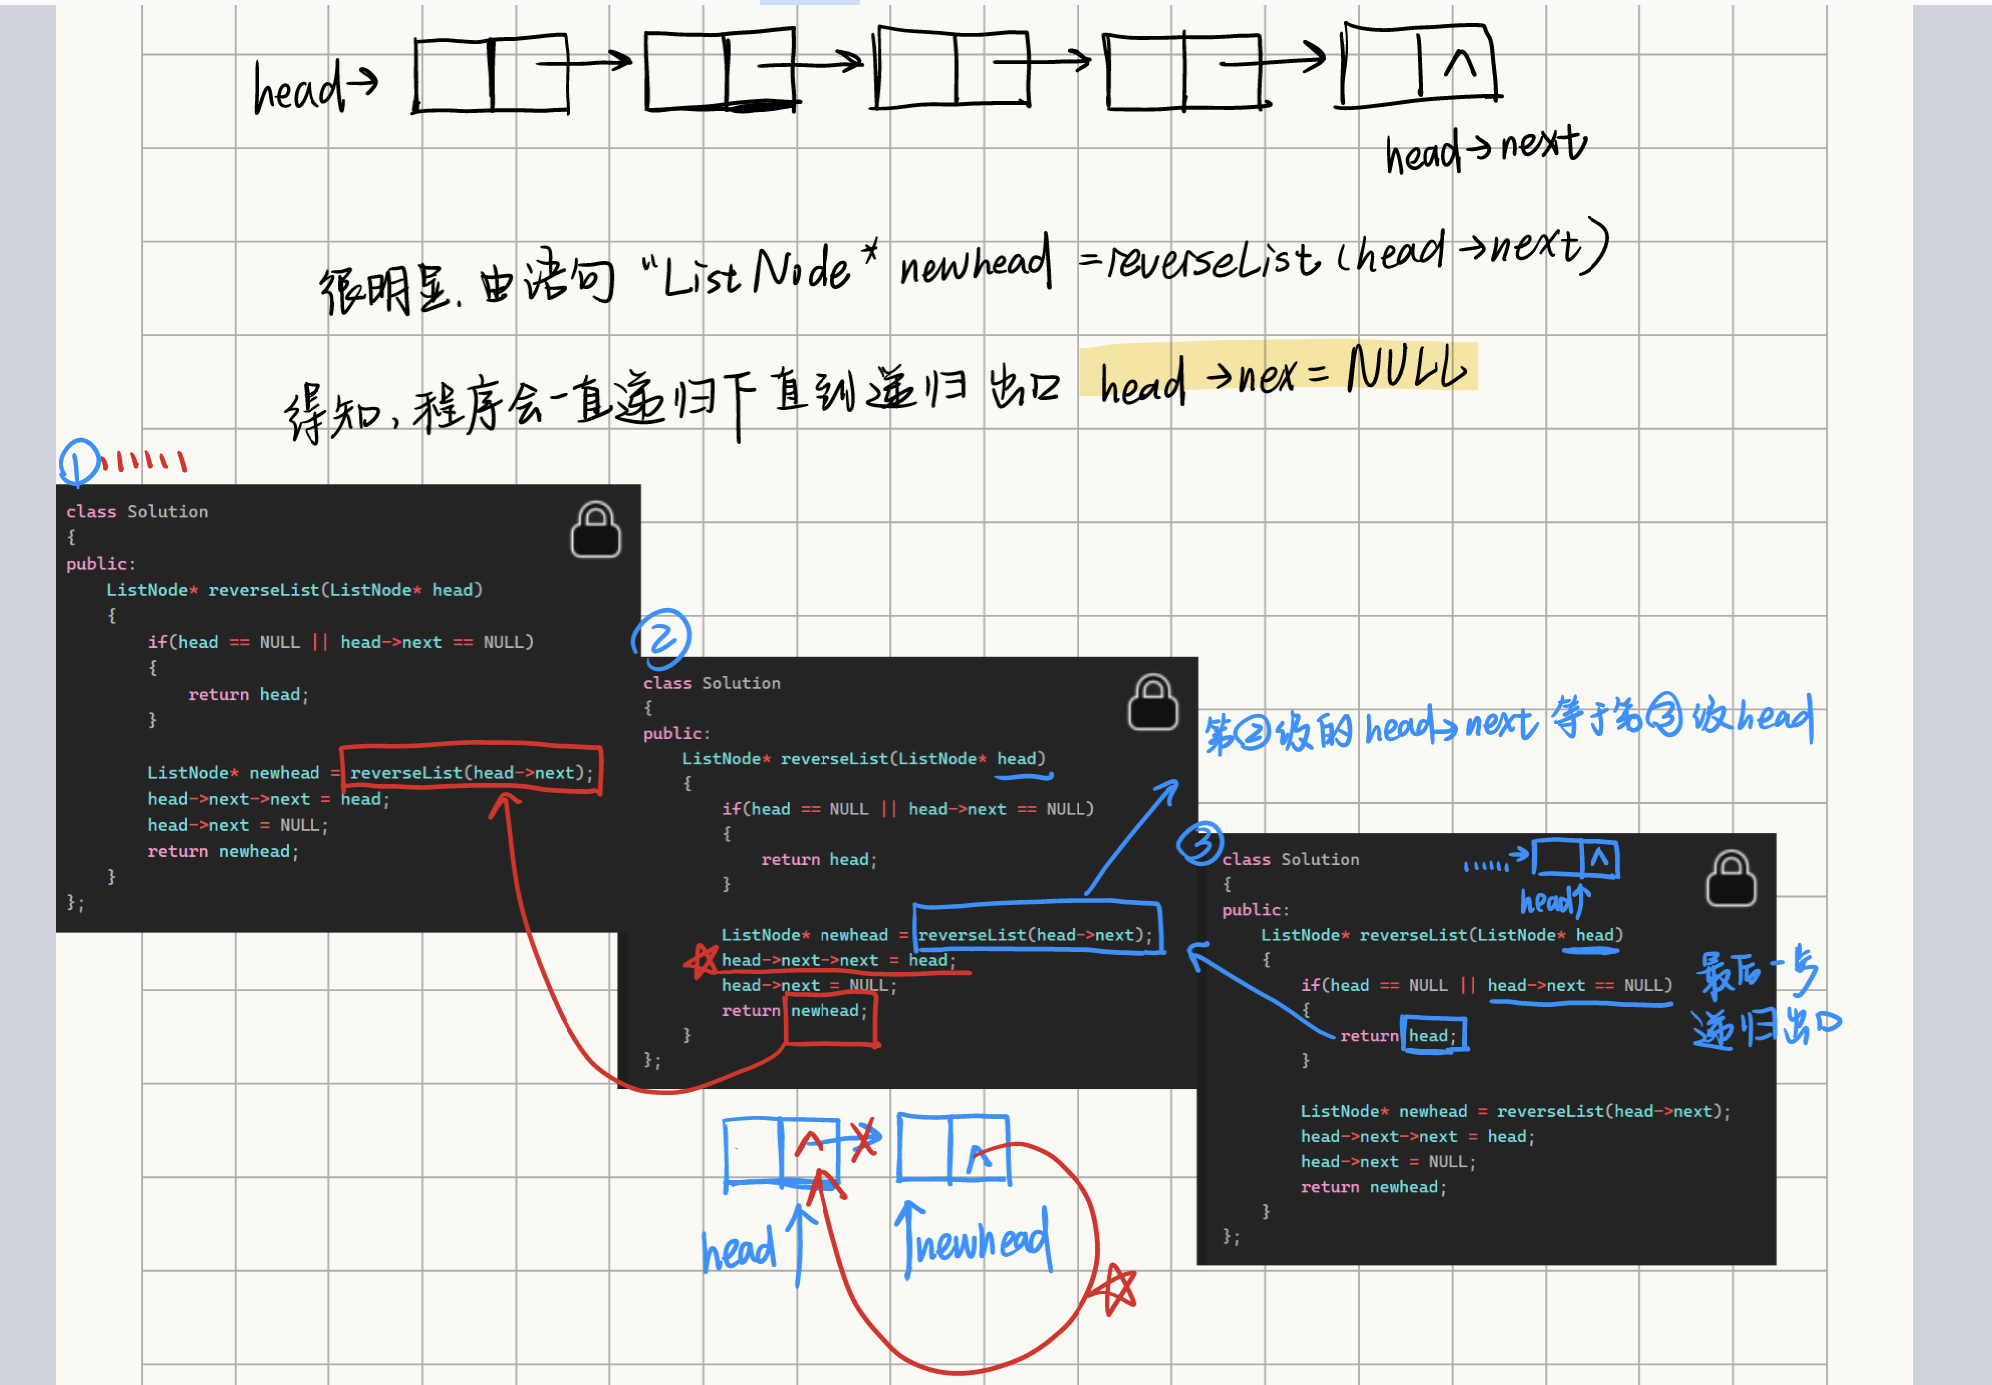 head→
head→next
很明显,由语句 “ListNode* newhead =reverseList(head→next)
得知,程序会一直递归下直到递归出口 head→nex=NULL
①
class Solution
{
public:
    ListNode* reverseList(ListNode* head)
    {
        if(head == NULL || head->next == NULL)
        {
            return head;
        }
        ListNode* newhead = reverseList(head->next);
        head->next->next = head;
        head->next = NULL;
        return newhead;
    }
};
②
class Solution
{
public:
    ListNode* reverseList(ListNode* head)
    {
        if(head == NULL || head->next == NULL)
        {
            return head;
        }
        ListNode* newhead = reverseList(head->next);
        head->next->next = head;
        head->next = NULL;
        return newhead;
    }
};
第②级的head→next等于第③级head
③
class Solution
{
public:
    ListNode* reverseList(ListNode* head)
    {
        if(head == NULL || head->next == NULL)
        {
            return head;
        }
        ListNode* newhead = reverseList(head->next);
        head->next->next = head;
        head->next = NULL;
        return newhead;
    }
};
head↑
最后一步
递归出口
head
newhead